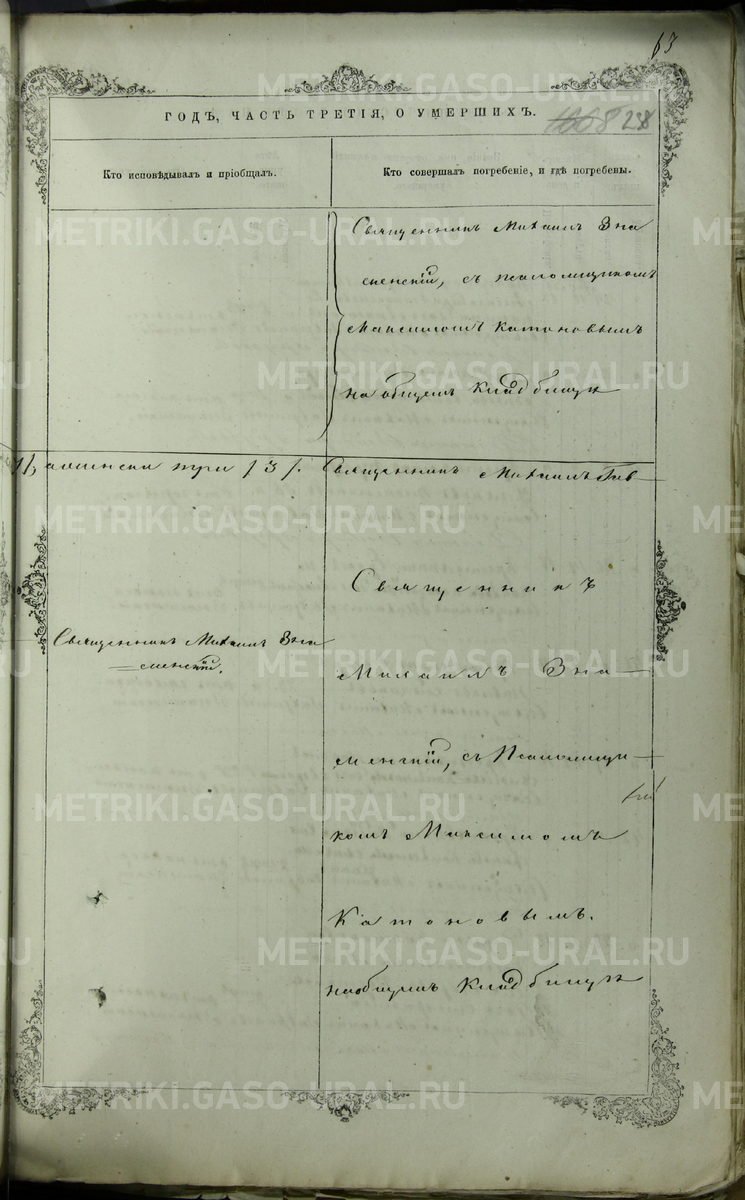 63
ГОДЪ, ЧАСТЬ ТРЕТІЯ, О УМЕРШИХЪ.
1008 28
Кто исповѣдывалъ и пріобщалъ.
Кто совершалъ погребеніе, и гдѣ погребены.
Священникъ Михаилъ Зна
менскій, съ псаломщикомъ
Максимомъ Катоновымъ
на общемъ кладбищѣ
три /3/. Священникъ Михаилъ
Священникъ Михаилъ Зна
менскій.
Священникъ
Михаилъ Зна
менскій, съ Псаломщи
комъ Максимомъ
Катоновымъ.
на общемъ кладбищѣ
METRIKI.GASO-URAL.RU